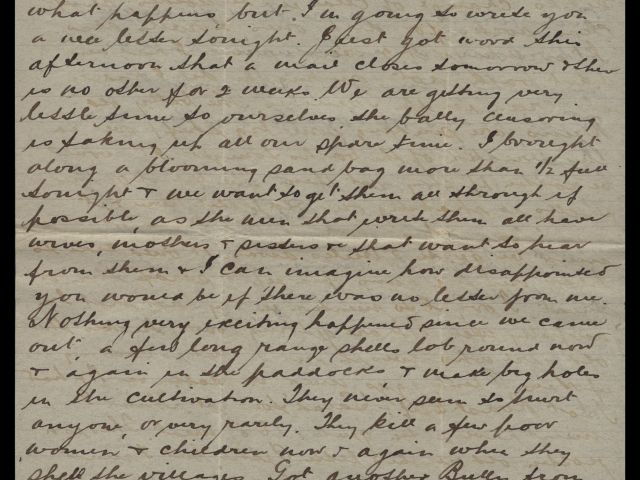 what happens but I'm going to write you
a wee letter tonight. Just got word this
afternoon that a mail closes tomorrow & there
is no other for 2 weeks. We are getting very
little time to ourselves, the bally censoring
is taking up all our spare time. I brought
along a blooming sand bag more than 1/2 full
tonight & we want to get them all through if
possible, as the men that write them all have
wives, mothers & sisters &c that want to hear
from them & I can imagine how disappointed
you would be if there was no letter from me.
Nothing very exciting happened since we came
out a few long range shells lob round now
& again in the paddocks & make big holes
in the cultivation. They never seem to hurt
anyone, or very rarely. They kill a few poor
women & children now & again when they
shell the villages. Got another Bulln from